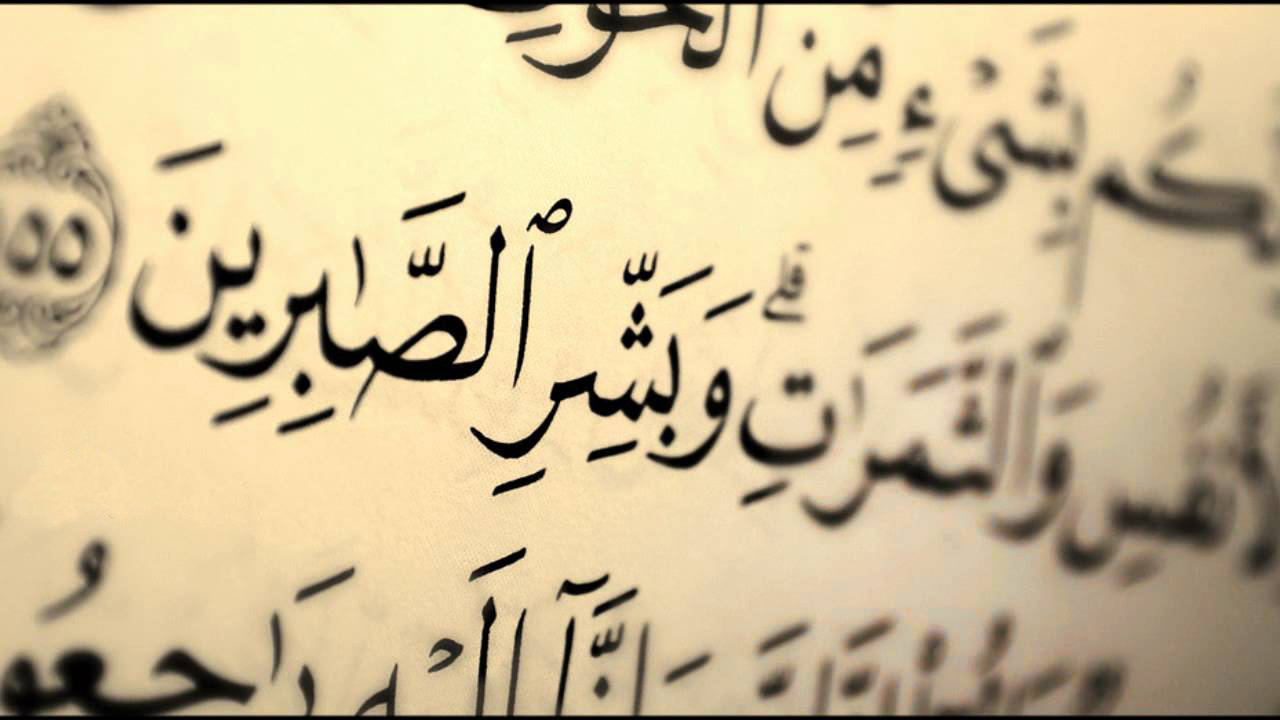 ـكُم بِشَىْءٍ مِّنَ ٱلْخَوْفِ
وَٱلْأَنفُسِ وَٱلثَّمَرَٰتِ ۗ وَبَشِّرِ ٱلصَّٰبِرِينَ ١٥٥
وَإِنَّآ إِلَيْهِ رَٰجِعُو